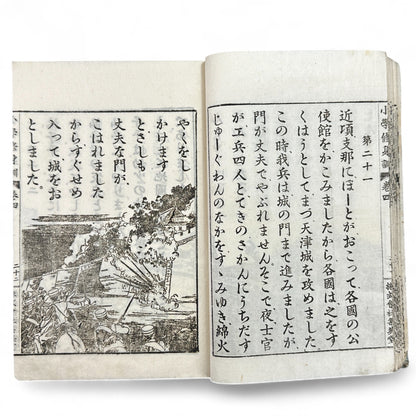 第二十一
近頃支那にぼーとがおこって各國の公
使館をかこみましたから各國は之をす
くはうとしてまづ天津城を攻めました
この時我兵は城の門まで進みましたが
門が丈夫でやぶれません。そこで夜士官
が工兵四人とてきのさかんにうちだす
じゅーぐわんのなかをすゝみゆき綿火
やくをし
かけます
とさしも
丈夫な門が、
こはれました
からすぐせめ
入って城をお
としました。
二十二